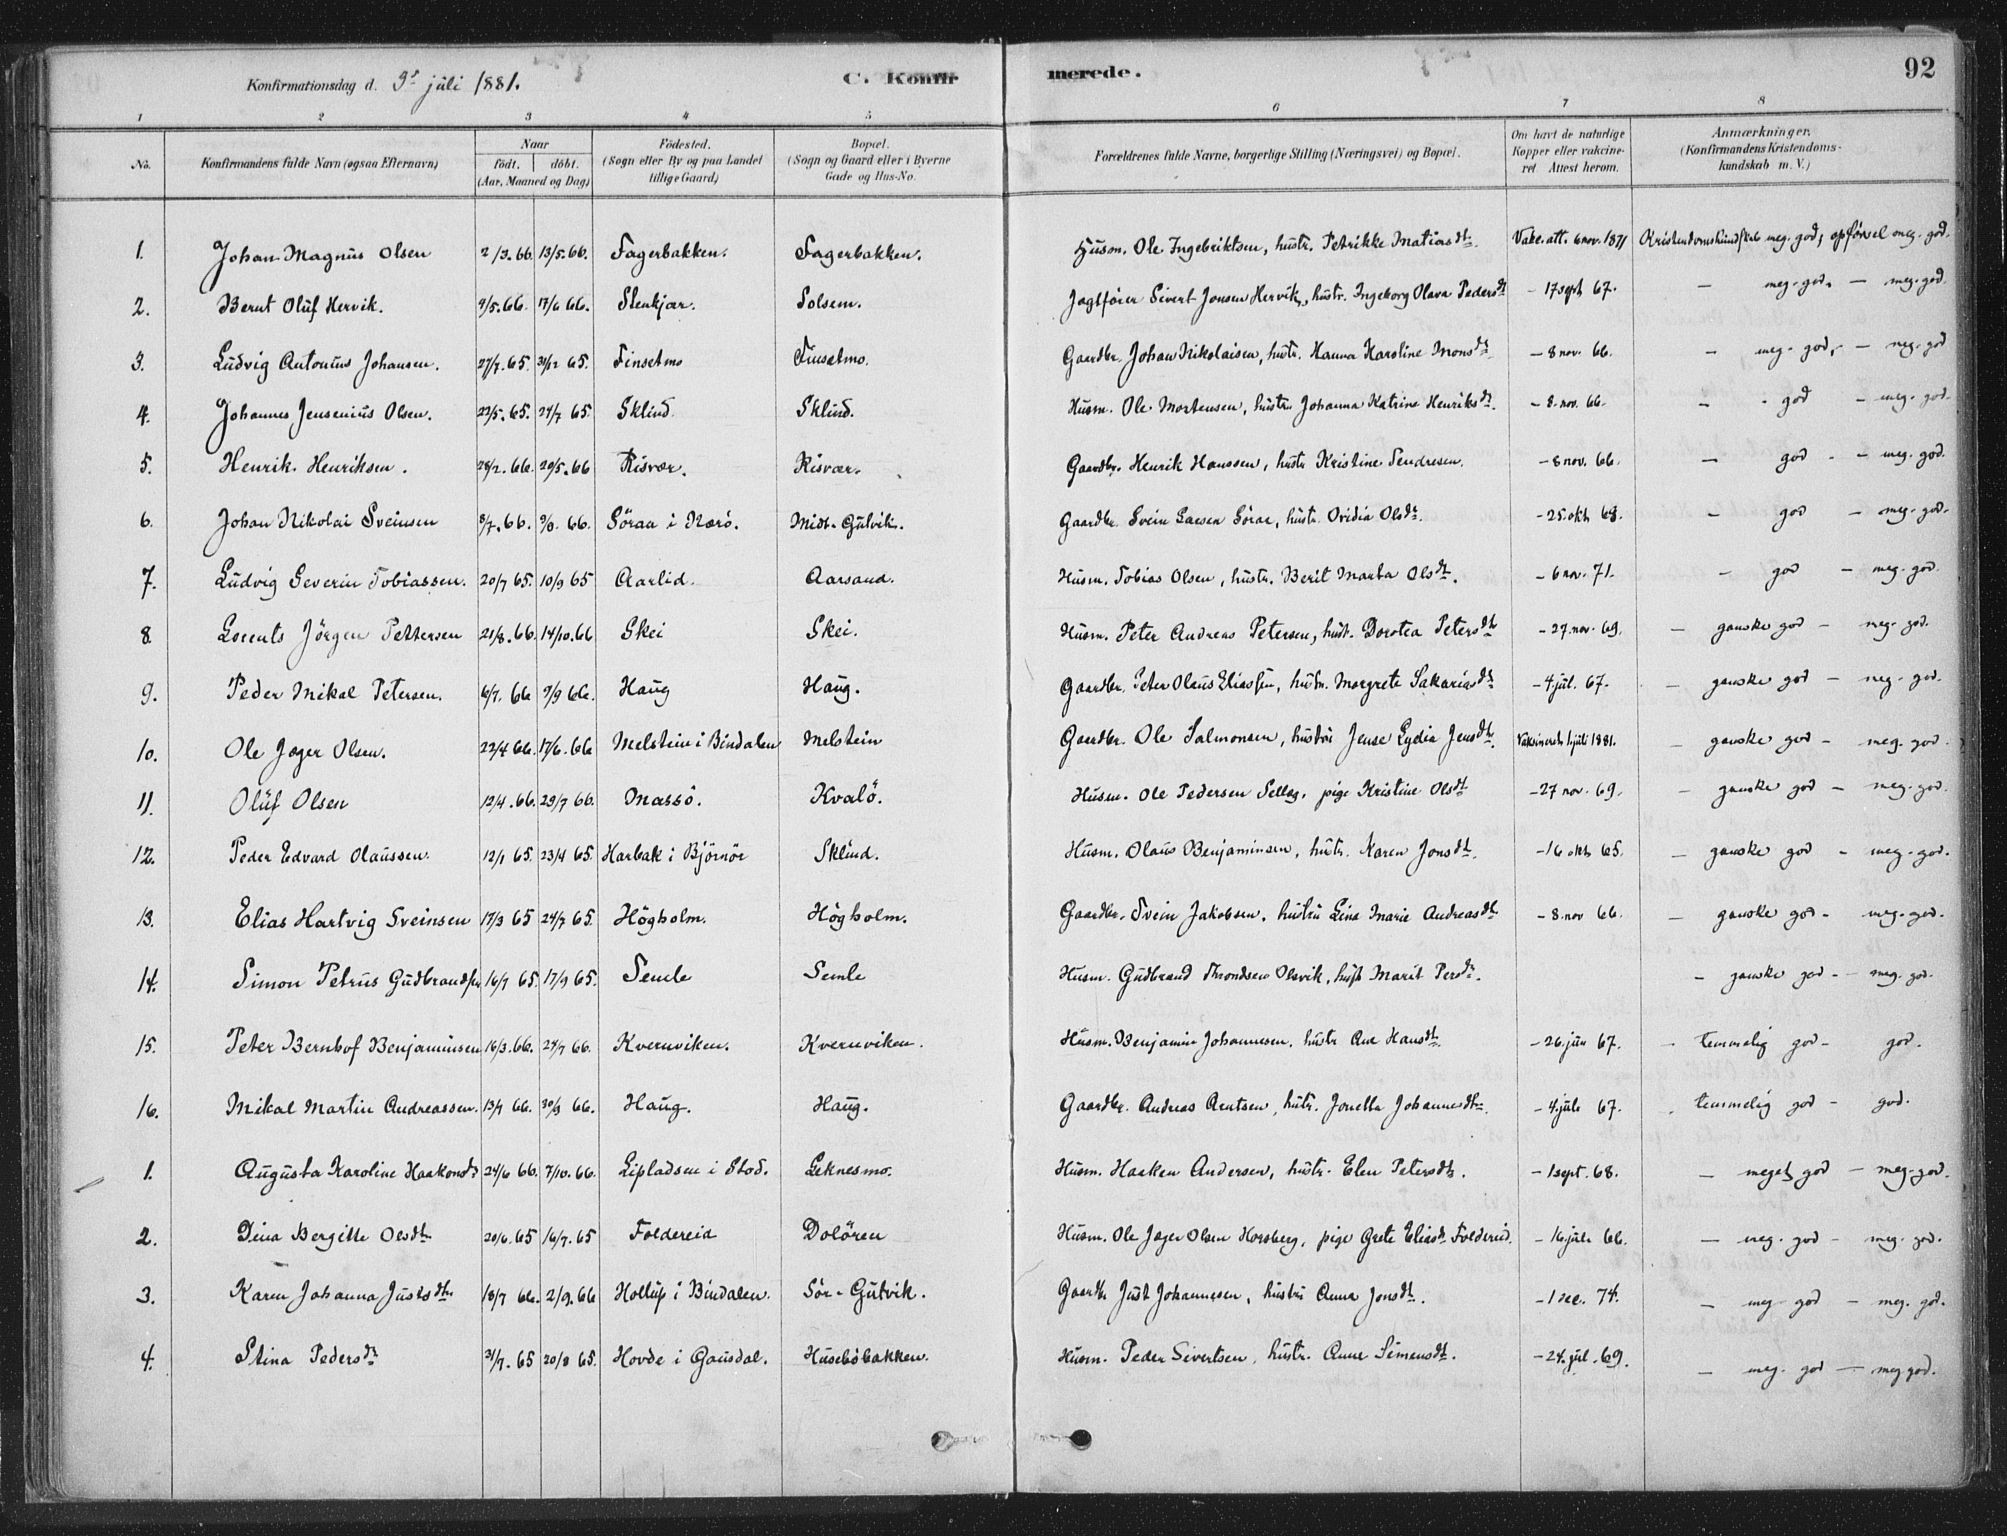 Konfirmationsdag d. 9de juli 1881. C. Konfirmerede. 92
1 2 3 4 5 6 7 8
No. Konfirmandens fulde Navn (ogsaa Efternavn) Naar födt. döbt. (Aar, Maaned og Dag) Födested. (Sogn eller By og paa Landet tillige Gaard) Bopæl. (Sogn og Gaard eller i Byerne Gade og Hus-No. Forældrenes fulde Navne, borgerlige Stilling (Næringsvei) og Bopæl. Om havt de naturlige Kopper eller vakcineret Attest herom. Anmærkninger. (Konfirmandens Kristendomskundskab m. V.)
1. Johan Magnus Olsen 2/3.66. 13/5.66. Fagerbakken. Fagerbakken. Husm. Ole Ingebriktsen, hustr. Petrikke Matiasdtr. Vakc. att. 6 nov. 1871 Kristendomskundskab meg. god, opförsel meg. god.
2. Bernt Oluf Hervik. 9/5.66. 17/6 66. Stenkjær. Solsem. Jagtförer Sivert Jonsen Hervik, hustr. Ingeborg Olava Pedersdt - 17 sept 67. - meg. god. - meg. god.
3. Ludvig Antonius Johansen. 27/7.65. 31/12 65. Finsetmo Finsetmo. Gaardbr. Johan Nikolaisen, hustr. Hanna Karoline Monsdt. - 8 nov. 66. - meg. god, - meg. god
4. Johannes Jensenius Olsen. 22/5.65. 24/7 65. Sklind. Sklind. Husm. Ole Mortensen, hustr. Johanna Katrine Henriksdt. - 8. nov. 66. - god - meg. god.
5. Henrik Henriksen. 28/2.66. 20/5.66 Risvær. Risvær. Gaardbr. Henrik Hanssen, hustr Kristine Sendresen. - 8 nov. 66. - god - meg. god.
6. Johan Nikolai Sveinsen 8/7.66. 9/8. 66. Söraa i Nærö. Midt-Gutvik. Gaardbr. Svein Larsen Söraa, hustr. Ovidia Olsdt. - 25. okt. 68. - god - meg. god.
7. Ludvig Severin Tobiassen. 20/7 65. 10/9 65 Aarlid. Aarsand. Husm. Tobias Olsen, hustr. Berit Marta Olsdt. - 6 nov. 71. - god - meg. god.
8. Lorents Jörgen Pettersen 21/8.66. 14/10.66 Skei Skei. Husm. Peter Andreas Petersen, hust. Dorotea Petersdtr - 27. nov. 69. - ganske god - meg. god.
9. Peder Mikal Petersen. 6/7. 66 9/9 66. Haug Haug. Gaardbr. Peter Olaus Eliassen, hustr. Margrete Sakariasdt - 4 jul. 67. - ganske god - meg. god.
10. Ole Jager Olsen. 22/4 66. 17/6.66 Melstein i Bindalen Melstein Gaardbr. Ole Salmonsen, hustru Jense Lydia Jensdtr. Vaksineret 1 juli 1881. - ganske god - meg. god.
11. Oluf Olsen 12/4.66. 29/7 66. Massö. Kvalö. Husm. Ole Pedersen Selleg, pige Kristine Olsdt - 27 nov. 69. - ganske god - meg. god.
12. Peder Edvard Olaussen. 12/1 65. 23/4 65. Harbak i Björnör Sklind. Husm. Olaus Benjaminsen, hustr. Karen Jonsdt. - 16 okt. 65. - ganske god - meg. god.
13. Elias Hartvig Sveinsen 17/3 65 24/7 65. Högholm. Högholm. Gaardbr. Svein Jakobsen, hustru Lina Marie Andreasdt. - 8. nov 66. - ganske god - meg. god.
14. Simon Petrus Gudbrandsen 16/7 65. 17/9 65. Semle Semle Husm. Gudbrand Throndsen Olsvik, hust Marit Persdt. - ganske god - meg. god.
15. Peter Bernhof Benjaminsen 16/3.66. 24/7 66. Kvernviken. Kvernviken. Husm. Benjamin Johannesen. hustr Ane Hansdt. - 26. jun 67. - temmelig god - god.
16. Mikal Martin Andreassen. 13/7 66. 30/9 66. Haug. Haug. Gaardbr. Andreas Arntsen, hustr. Jonetta Johannesdtr. - 4. juli 67. - temmelig god - god.
1. Augusta Karoline Haakonsdt 24/6 66. 7/10.66. Lipladsen i Stod. Leknesmo. Husm. Haaken Andersen, hustr. Elen Petersdt. - 1 sept. 68. - meget god - meg. god.
2. Dina Bergitte Olsdt. 20/6.65 16/7.65 Foldereid Dolören Husm. Ole Jager Olsen Horsberg, pige Grete Eliasdt Foldereid. - 16. juli 66. - meg. god - meg. god.
3. Karen Johanna Justsdtr 18/7 66. 2/9.66 Hollup i Bindalen. Sör-Gutvik. Gaardbr Just Johannesen, hustru Anna Jonsdt. - 1 dec. 74. - meg god - meg. god.
4. Stina Pedersdt 31/7.65 20/8 65. Hovde i Gausdal. Huseböbakken. Husm. Peder Sivertsen, hustr. Anne Simensdt. - 24. jul. 69. - meg. god - meg god.